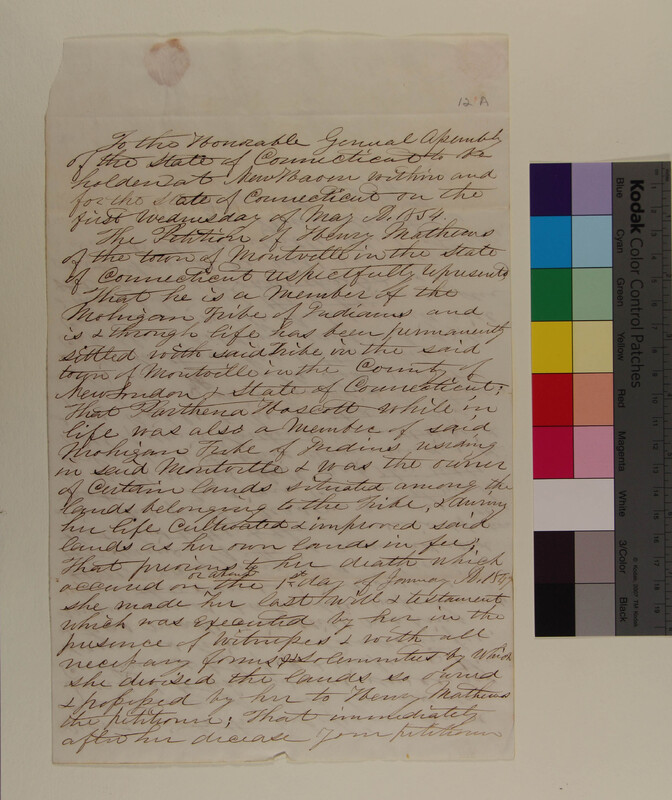 12 A
To the Honorable General Assembly
of the State of Connecticut to be
holden at New Haven within and
for the State of Connecticut on the
first Wednesday of May A. 1854.
The Petition of Henry Mathews
of the town of Montville in the State
of Connecticut respectfully represents
That he is a Member of the
Mohigan Tribe of Indians and
is & through life has been permanently
settled with said Tribe in the said
town of Montville in the County of
New London & State of Connecticut;
That Parthena Hoscott while in
life was also a Member of said
Mohigan Tribe of Indins residing
in said Montville & was the owner
of Certain lands situated among the
lands belonging to the Tribe, & during
her life Cultivated & improved said
lands as her own lands in fee;
That previous to her death which
occured on or about the 1st day of January A.
she made her last Will & testament
which was executed by her in the
presence of witnesses & with all
necessary forms & Solemnities by Which
she devised the lands so owned
& possessed by her to Henry Mathews
the petitioner; That immediately
after her decease your petitioner
Kodak Color Control Patches
Blue
Cyan
Green
Yellow
Red
Magenta
White
3/Color
Black